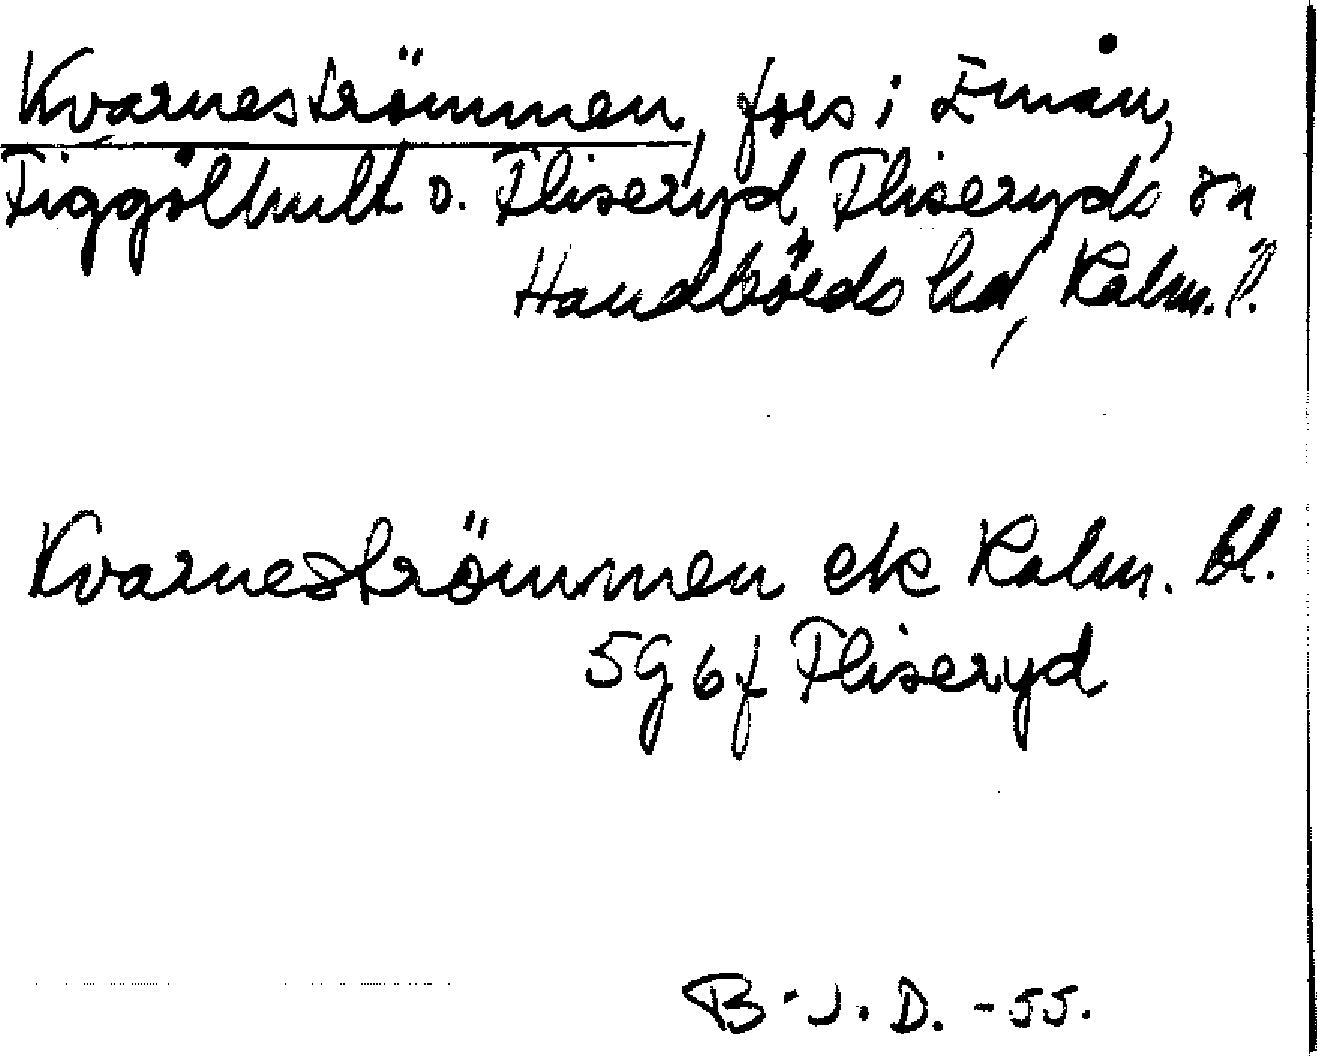 Kvarneströmmen, fors i Emån,
Figgölhult o. Fliseryd, Fliseryds sn
Handbörds hd, Kalm. l.
Kvarneströmmen ek Kalm. bl.
5G 6f Fliseryd
B. J. D. -55.